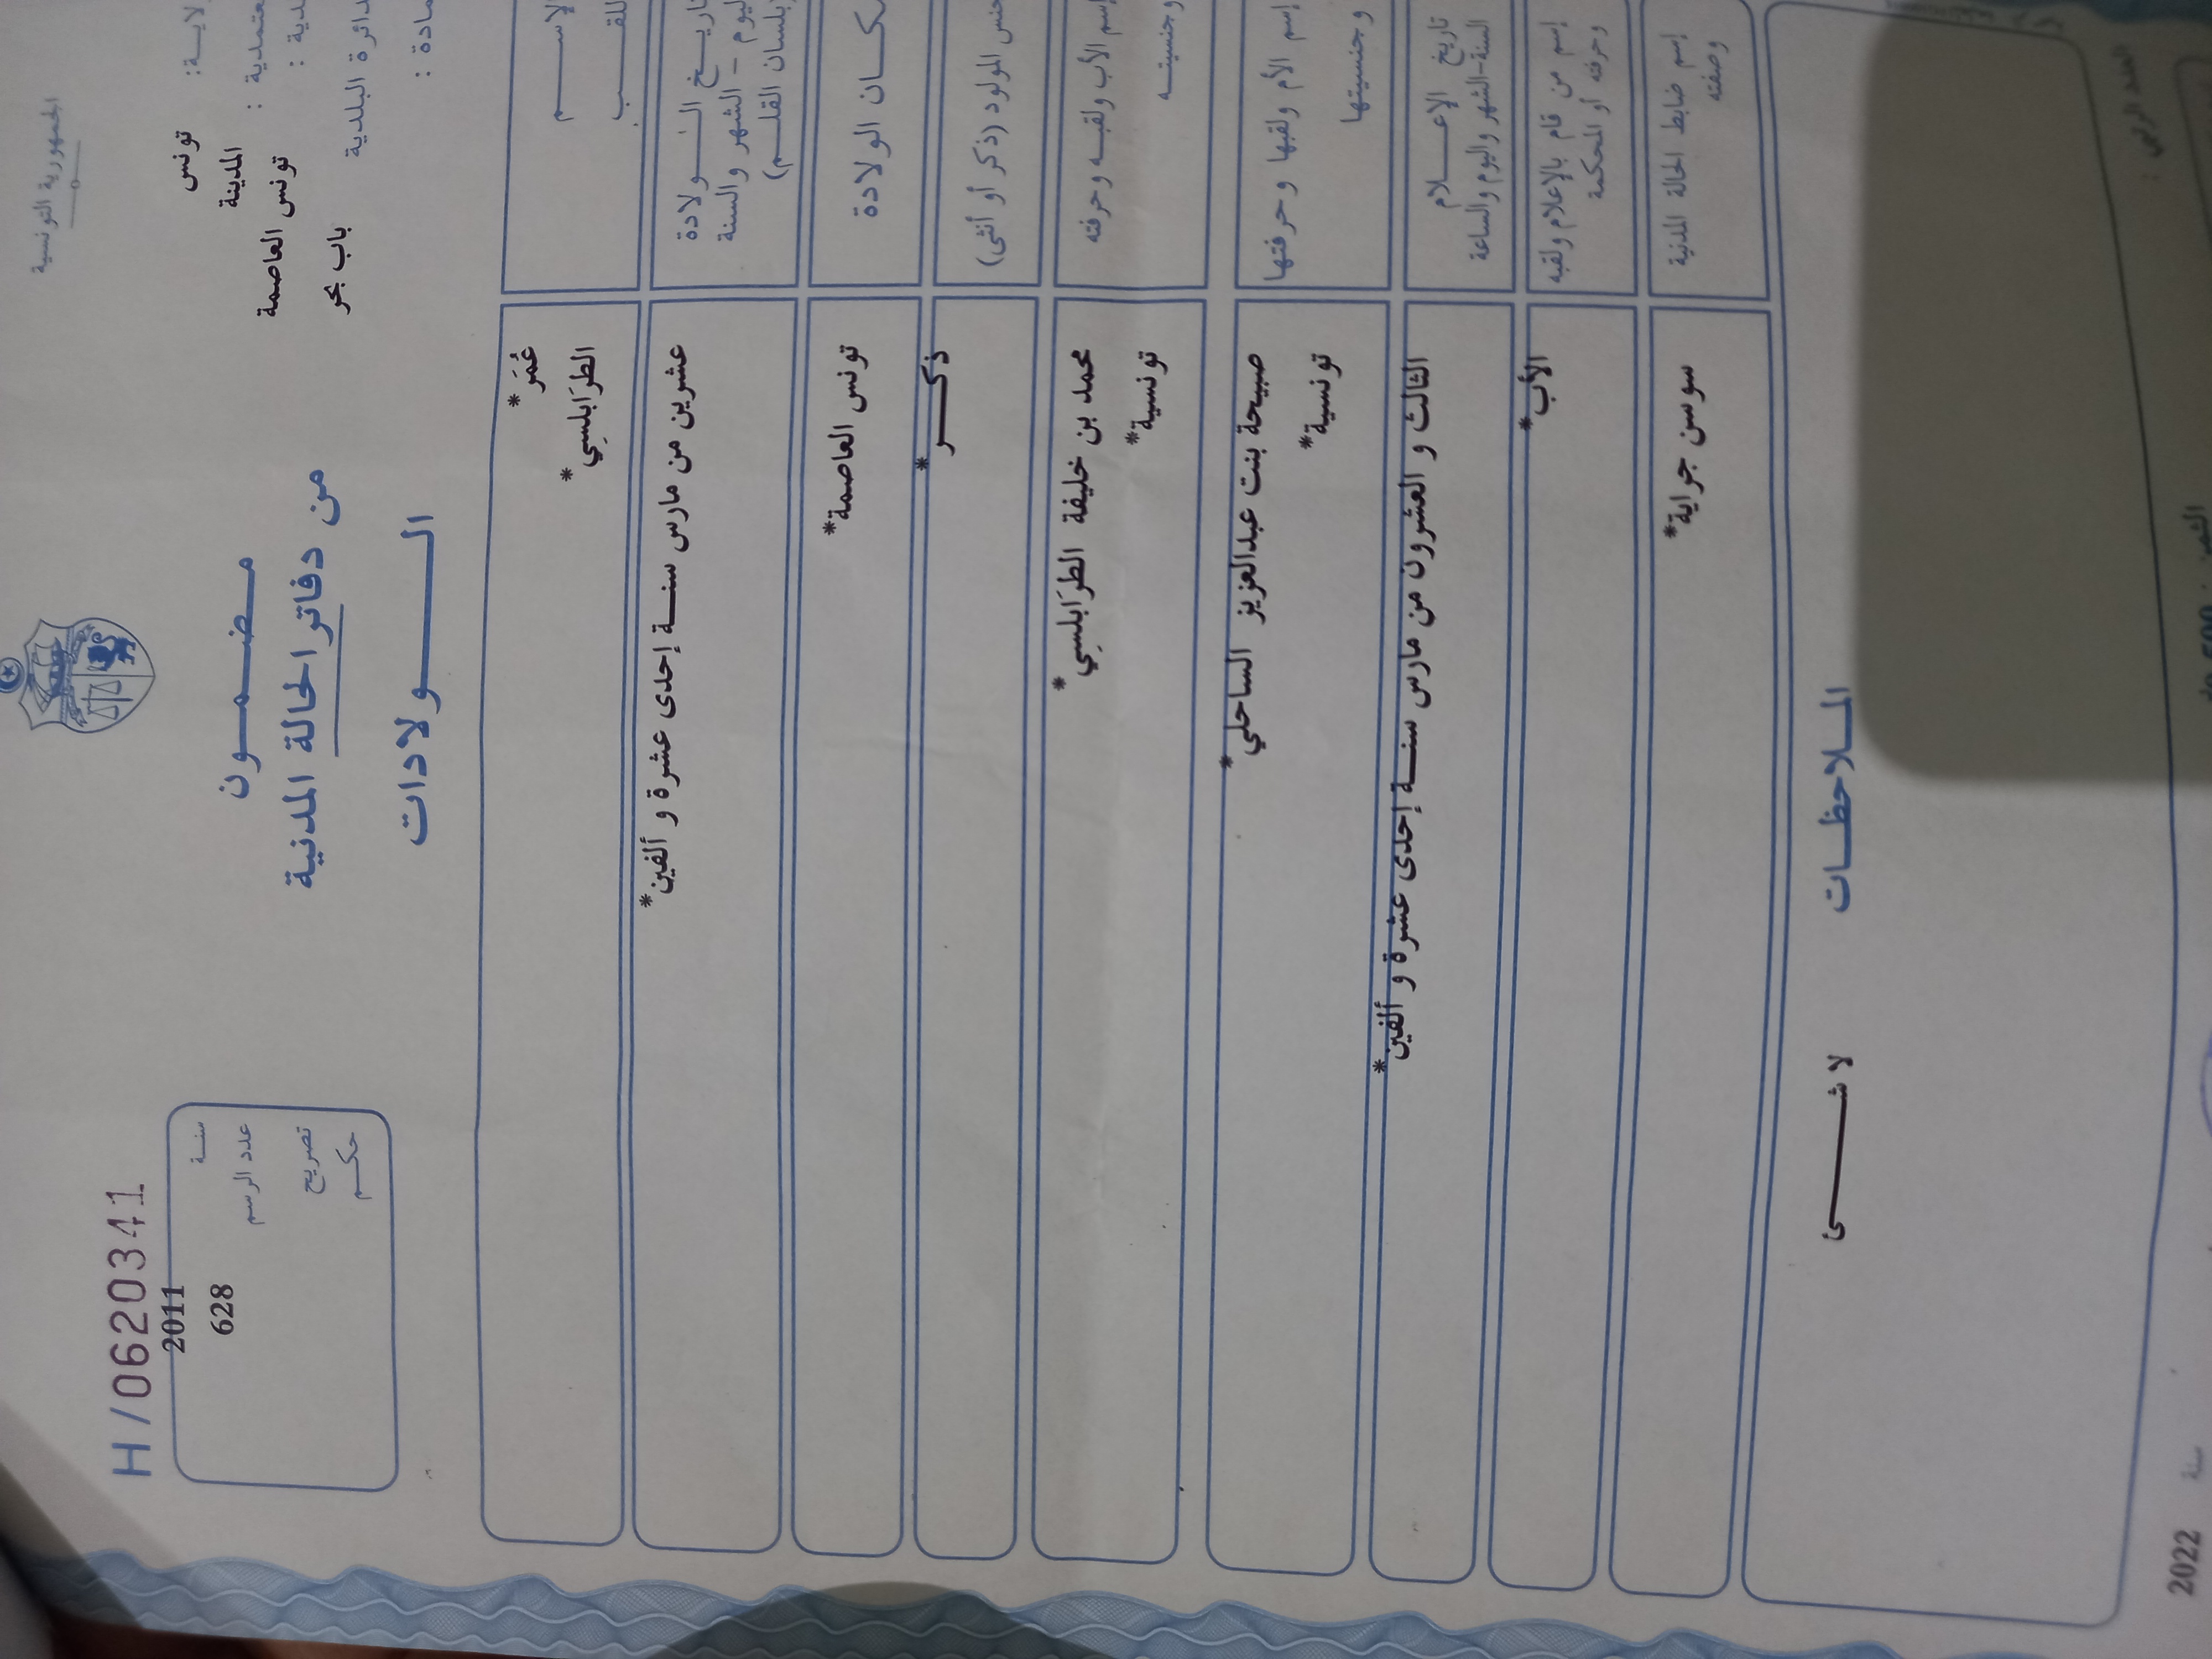 الجمهورية التونسية
H/0620341
تونس
المدينة
تونس العاصمة
دائرة البلدية
باب بحر
مضمون
من دفاتر الحالة المدنية
الولادات
سنة 2011
عدد الرسم 628
تصريح
حكم
الإسم عُمَر*
اللقب الطرَابلسِي*
عشرين من مارس سنة إحدى عشرة و ألفين*
تاريخ الولادة
اليوم - الشهر والسنة
(بلسان القلم)
مكان الولادة تونس العاصمة*
جنس المولود (ذكر أو أنثى) ذكر*
إسم الأب ولقبه وحرفته محمد بن خليفة الطرَابلسِي*
وجنسيته تونسية*
إسم الأم ولقبها وحرفتها صبيحة بنت عبدالعزيز الساحلي*
وجنسيتها تونسية*
تاريخ الإعلام الثالث و العشرون من مارس سنة إحدى عشرة و ألفين*
السنة-الشهر واليوم والساعة
إسم من قام بالإعلام ولقبه الأب*
وحرفته أو المحكمة
إسم ضابط الحالة المدنية سوسن جراية*
وصفته
الملاحظات لا شئ
سنة 2022